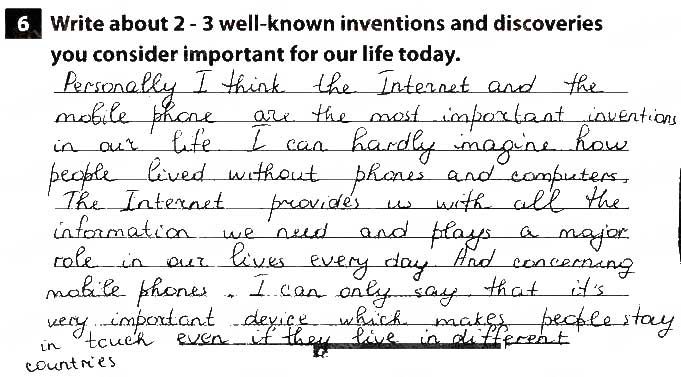 6 Write about 2 - 3 well-known inventions and discoveries
you consider important for our life today.
Personally I think the Internet and the
mobile phone are the most important inventions
in our life. I can hardly imagine how
people lived without phones and computers.
The Internet provides us with all the
information we need and plays a major
role in our lives every day. And concerning
mobile phones, I can only say that it's
very important device which makes people stay
in touch even if they live in different
countries